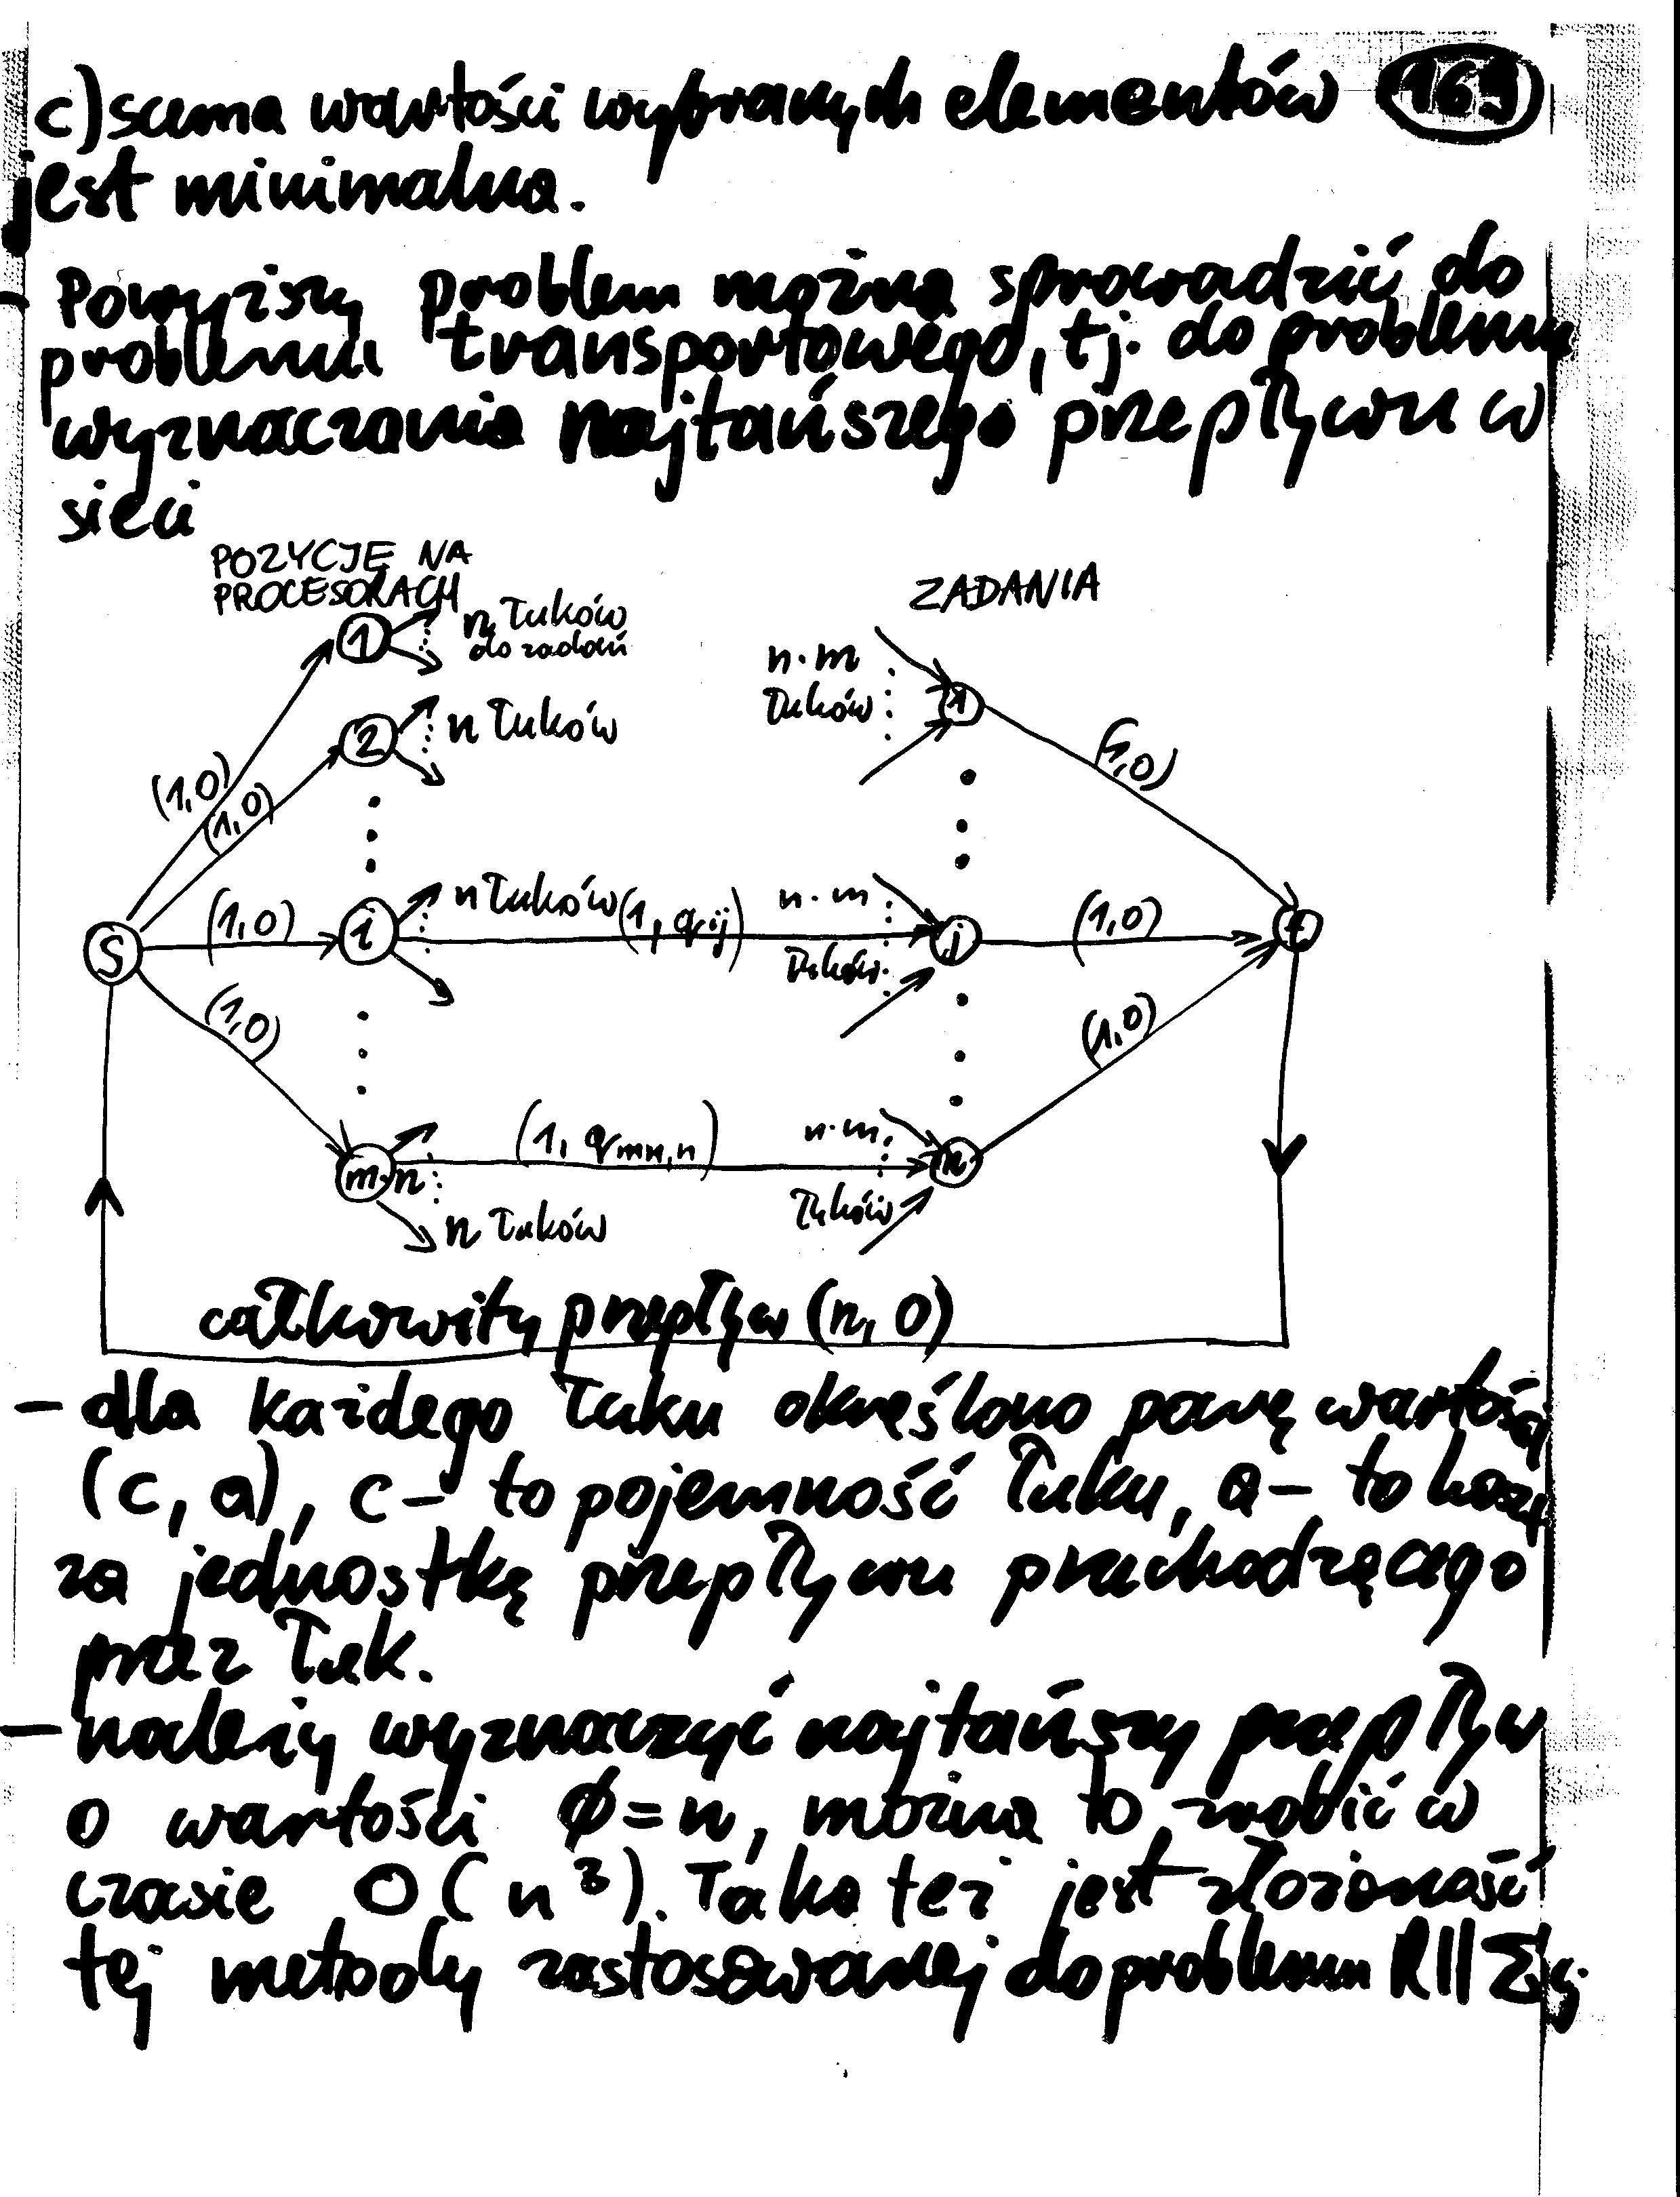 c) suma wartości wybranych elementów 169
jest minimalna.
Powyższy problem można sprowadzić do
problemu transportowego, tj. do problemu
wyznaczania najtańszego przepływu w
sieci
POZYCJE NA
PROCESORACH
ZADANIA
1 n łuków
do zadań
n·m
łuków
1
2 n łuków
(1,0)
(1,0)
(1,0)
S (1,0) i n łuków (1, qij) n·m
łuków j (1,0) t
(1,0)
(1,0)
m·n (1, qmn,n) n·m
łuków n
n łuków
całkowity przepływ (n, 0)
- dla każdego łuku określono parę wartości
(c, a), c - to pojemność łuku, a - to koszt
za jednostkę przepływu przechodzącego
przez łuk.
- należy wyznaczyć najtańszy przepływ
o wartości ϕ = n, można to zrobić w
czasie O(n³). Taka też jest złożoność
tej metody zastosowanej do problemu R||ΣCj.